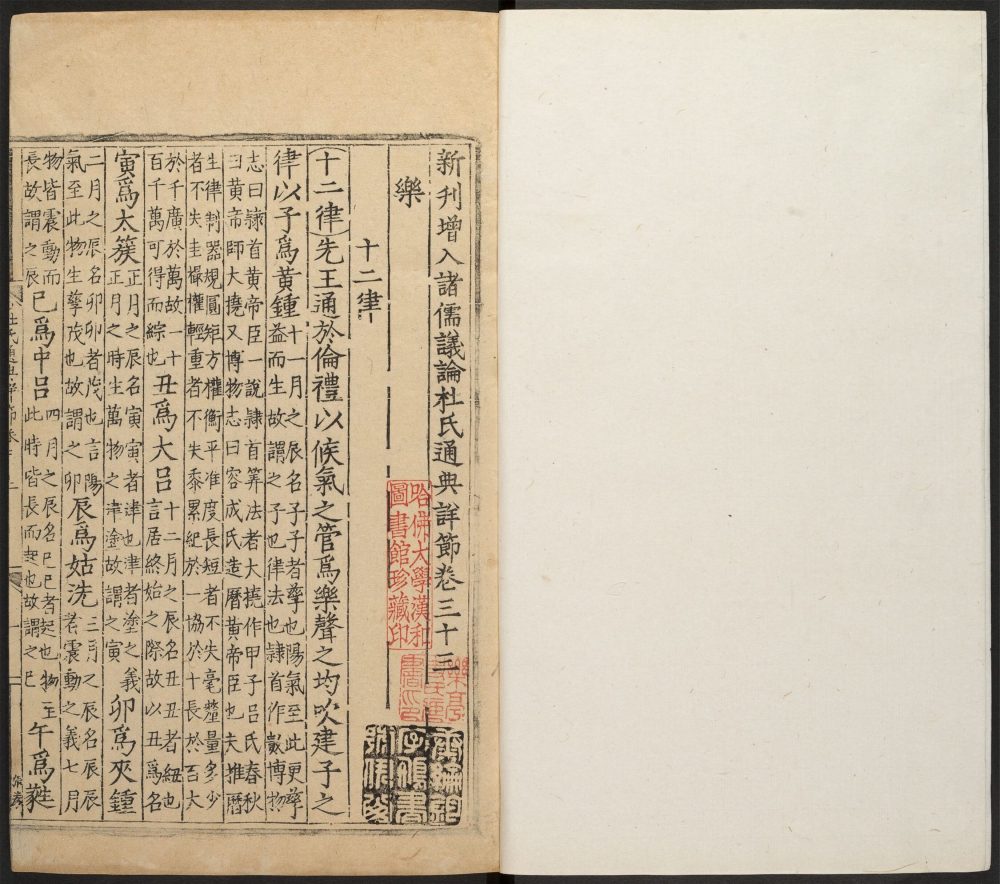 新刊增入諸儒議論杜氏通典詳節卷三十三
樂
十二律
十二律先王通於倫禮以候氣之管爲樂聲之均吹建子之
律以子爲黃鍾十一月之辰名子子者孳也陽氣至此更孳益而生故謂之子也律法也隷首作數博物
志曰隷首黃帝臣一說隷首筭法者大撓作甲子呂氏春秋曰黃帝師大撓又博物志曰容成氏造曆黃帝臣也夫推曆
生律制器規圓矩方權衡平准度長短者不失毫釐量多少者不失圭撮權輕重者不失黍累紀於一協於十長於百大
於千廣於萬故一十百千萬可得而綜也丑爲大呂十二月之辰名丑丑者紐也言居終始之際故以丑爲名
寅爲太簇正月之辰名寅寅者津也津者塗之義正月之時生萬物之津塗故謂之寅卯爲夾鍾
二月之辰名卯卯者茂也言陽氣至此物生孳茂也故謂之卯辰爲姑洗三月之辰名辰辰者震動之義七月
物皆震動而長故謂之辰巳爲中呂四月之辰名巳巳者起也物至此時皆長而起也故謂之巳午爲蕤
哈佛大學漢和
圖書館珍藏印